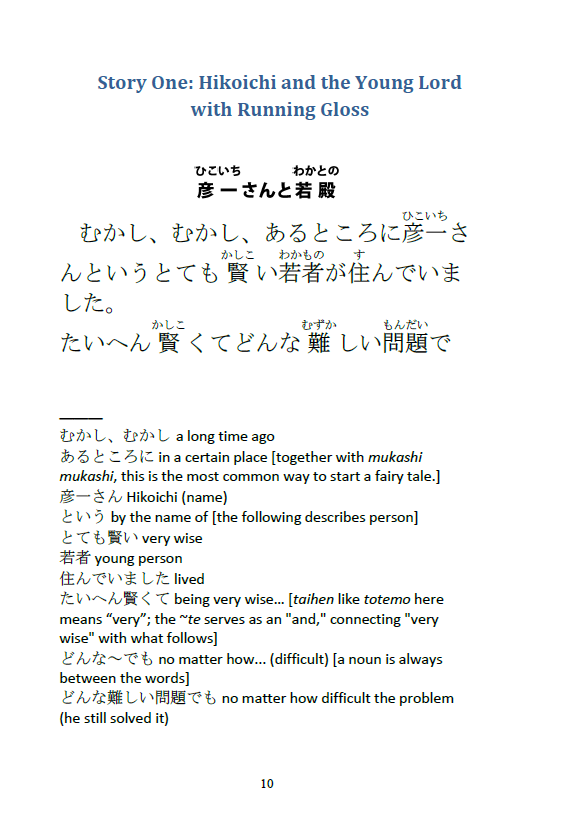 Story One: Hikoichi and the Young Lord
with Running Gloss
ひこいち わかとの
彦一さんと若殿
ひこいち
むかし、むかし、あるところに彦一さ
かしこ わかもの す
んというとても賢い若者が住んでいま
した。
かしこ むずか もんだい
たいへん賢くてどんな難しい問題で
むかし、むかし a long time ago
あるところに in a certain place [together with mukashi
mukashi, this is the most common way to start a fairy tale.]
彦一さん Hikoichi (name)
という by the name of [the following describes person]
とても賢い very wise
若者 young person
住んでいました lived
たいへん賢くて being very wise... [taihen like totemo here
means “very”; the ~te serves as an "and," connecting "very
wise" with what follows]
どんな～でも no matter how... (difficult) [a noun is always
between the words]
どんな難しい問題でも no matter how difficult the problem
(he still solved it)
10